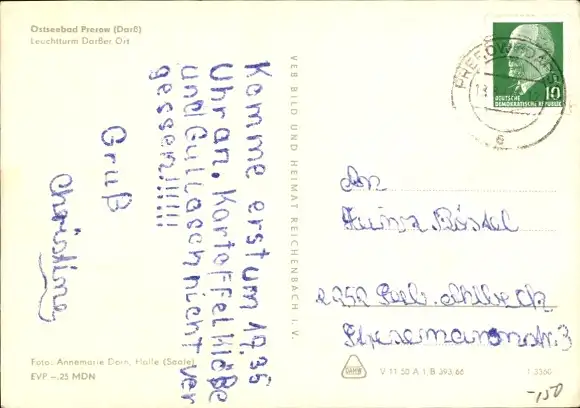 Ostseebad Prerow (Darß)
Leuchtturm Darßer Ort
Komme erst um 19,36
Uhr an. Kartoffelklöße
und Gullasch nicht ver
gessen!!!!!!
Gruß
VEB BILD UND HEIMAT REICHENBACH I. V.
PREROW
10
DEUTSCHE
DEMOKRATISCHE REPUBLIK
An
Böstel
Seeb. Ahlbeck
Foto: Annemarie Dorn, Halle (Saale)
EVP –.25 MDN
V 11 50 A 1, B 393/66
-150